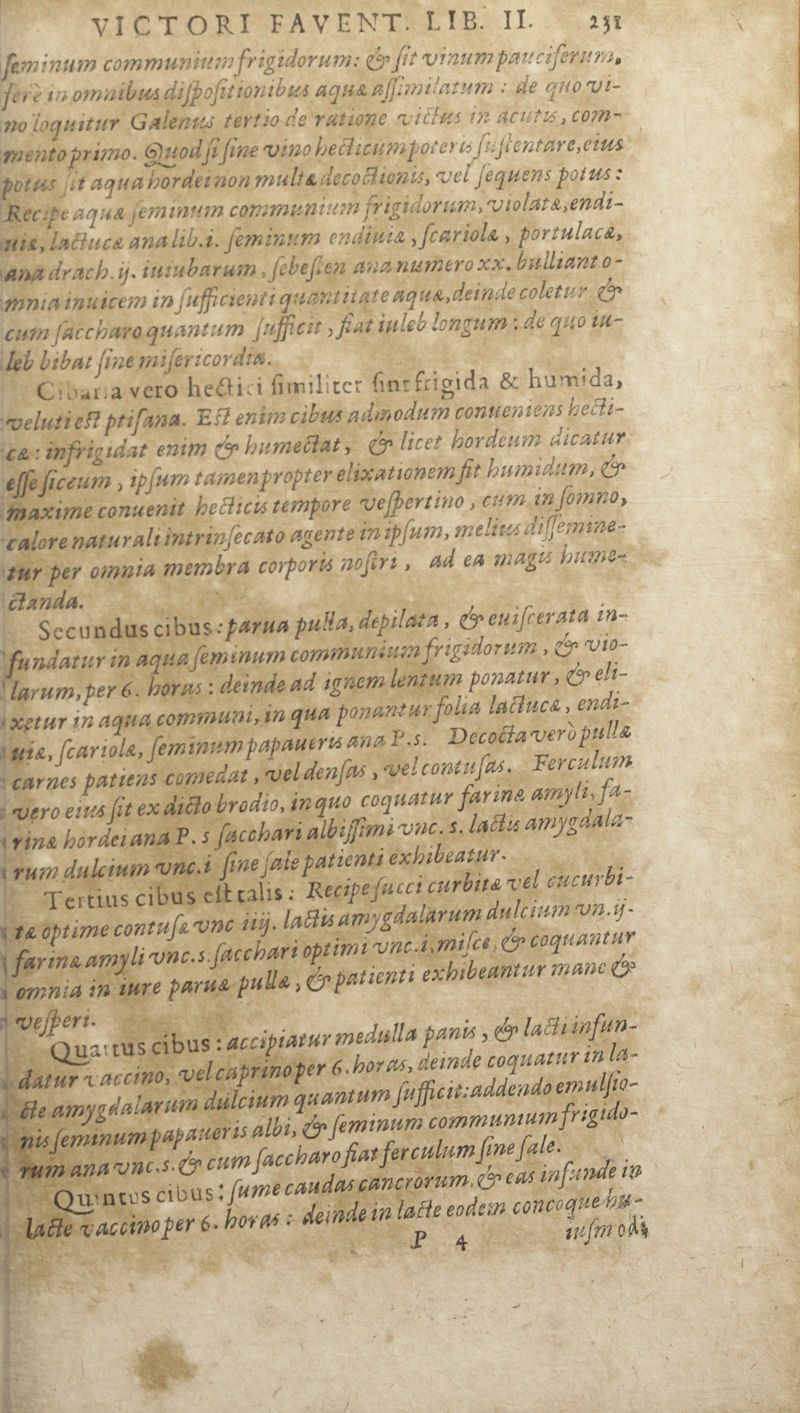 VICTORI FAVENT. LIB. II. 231
ſeminum communium frigidorum: & ſit vinum pauciferum,
ferè in omnibus diſpoſitionibus aquæ aſſimilatum : de quo vi-
no loquitur Galenus tertio de ratione victus in acutis, com-
mento primo. Quod ſi ſine vino hecticum poteris ſuſtentare, eius
potus ſit aqua hordei non multæ decoctionis, vel ſequens potus:
Recipe aquæ ſeminum communium frigidorum, violatæ, endi-
uiæ, lactucæ ana lib.i. ſeminum endiuiæ, ſcariolæ, portulacæ,
ana drach. ij. iuiubarum, ſebeſten ana numero xx. bulliant o-
mnia inuicem in ſufficienti quantitate aquæ, deinde coletur &
cum ſaccharo quantum ſufficit, fiat iuleb longum : de quo iu-
leb bibat ſine miſericordia.
Cibaria vero hectici ſimiliter ſint frigida & humida,
veluti eſt ptiſana. Eſt enim cibus admodum conueniens hecti-
cæ : infrigidat enim & humectat, & licet hordeum dicatur
eſſe ſiccum, ipſum tamen propter elixationem fit humidum, &
maxime conuenit hecticis tempore veſpertino, cum in ſomno,
calore naturali intrinſecato agente in ipſum, melius diſſemine-
tur per omnia membra corporis noſtri, ad ea magis hume-
ctanda.
Secundus cibus : parua pulla, depilata, & euiſcerata in-
fundatur in aqua ſeminum communium frigidorum, & vio-
larum, per 6. horas : deinde ad ignem lentum ponatur, & eli-
xetur in aqua communi, in qua ponantur folia lactucæ, endi-
uiæ, ſcariolæ, ſeminum papaueris ana P.s. Decocta vero pullæ
carnes patiens comedat, vel denſas, vel contuſas. Ferculum
vero eius ſit ex dicto brodio, in quo coquatur farinæ amyli, fa-
rinæ hordei ana P. s ſacchari albiſſimi vnc. s. lactis amygdala-
rum dulcium vnc.i ſine ſale patienti exhibeatur.
Tertius cibus eſt talis : Recipe ſucci curbitæ vel cucurbi-
tæ optime contuſæ vnc iiij. lactis amygdalarum dulcium vn.ij.
farinæ amyli vnc.s. ſacchari optimi vnc.i. miſce, & coquantur
omnia in iure paruæ pullæ, & patienti exhibeantur mane &
veſperi.
Quartus cibus : accipiatur medulla panis, & lacti infun-
datur vaccino, vel caprino per 6. horas, deinde coquatur in la-
cte amygdalarum dulcium quantum ſufficit: addendo emulſio-
nis ſeminum papaueris albi, & ſeminum communium frigido-
rum ana vnc.s. & cum ſaccharo fiat ferculum ſine ſale.
Quintus cibus : ſume caudas cancrorum, & eas infunde in
lacte vaccino per 6. horas : deinde in lacte eodem concoque hu-
P 4 iuſmodi